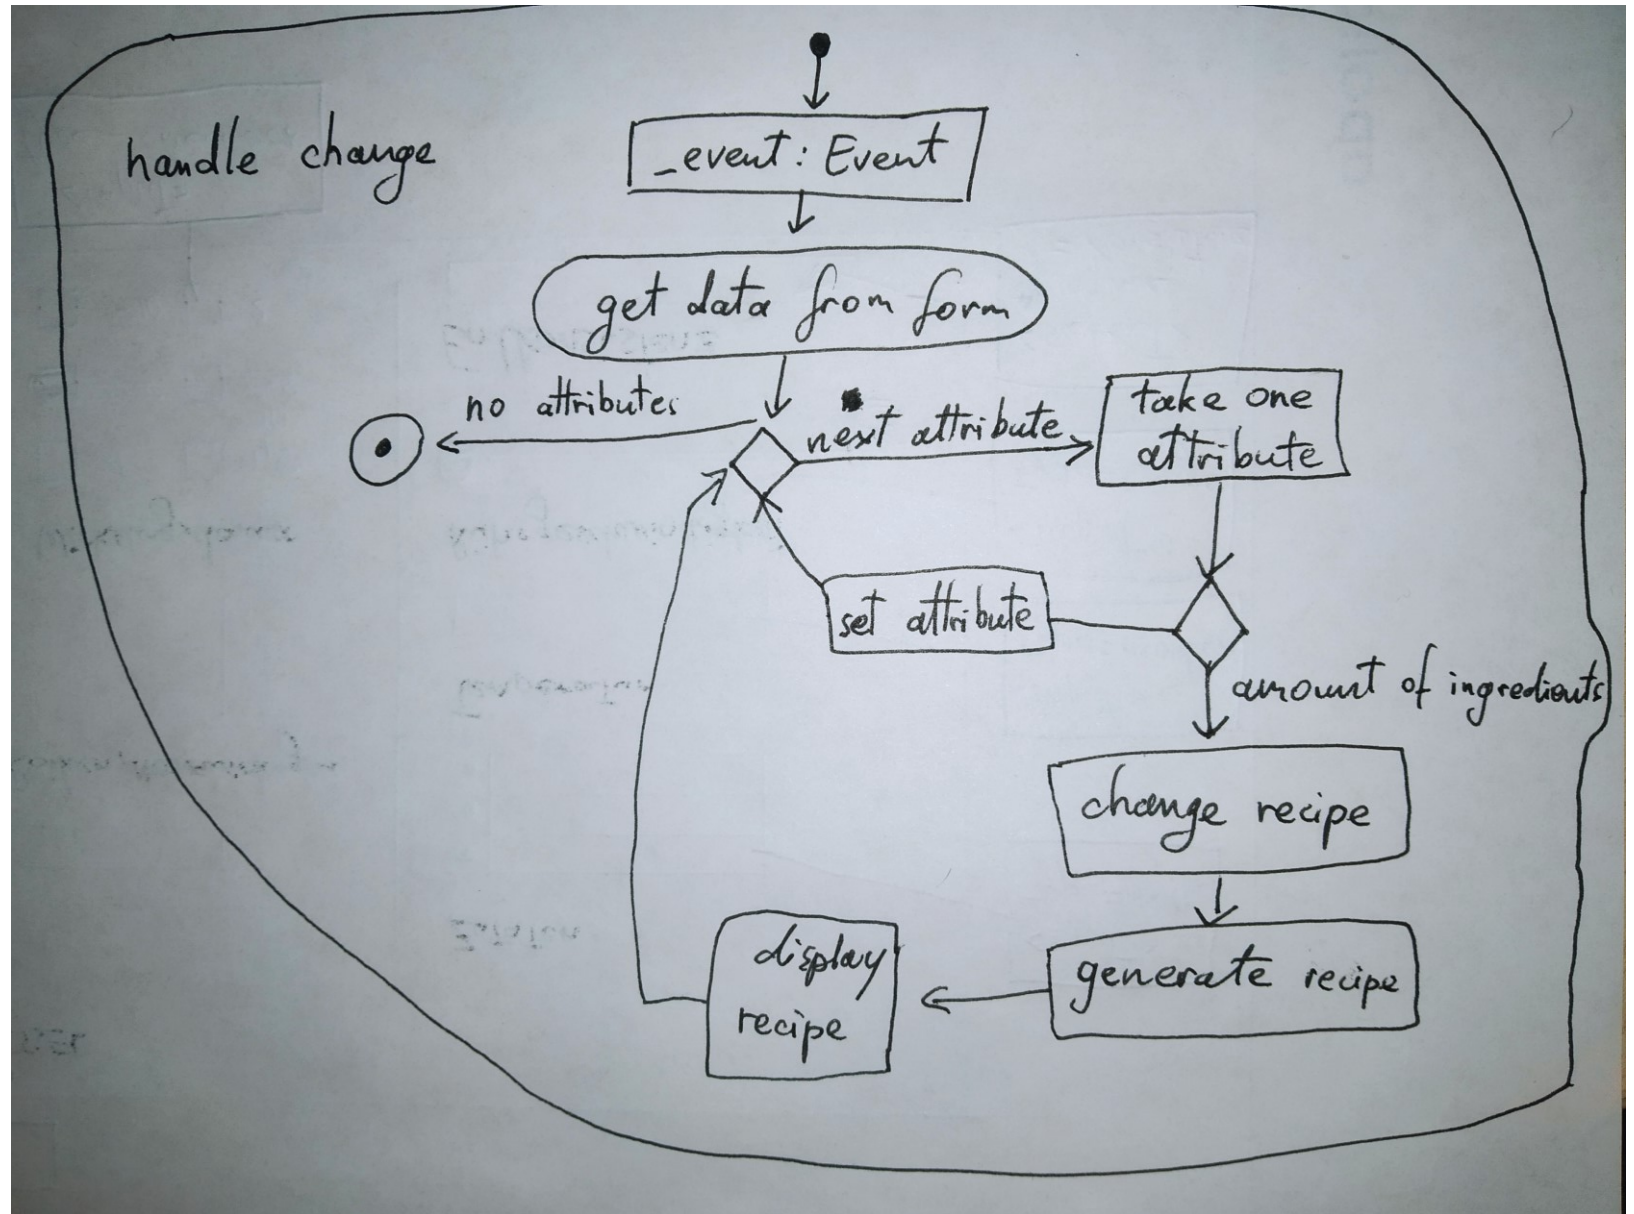 handle change
_event: Event
get data from form
no attributes
next attribute
take one
attribute
set attribute
amount of ingredients
change recipe
generate recipe
display
recipe